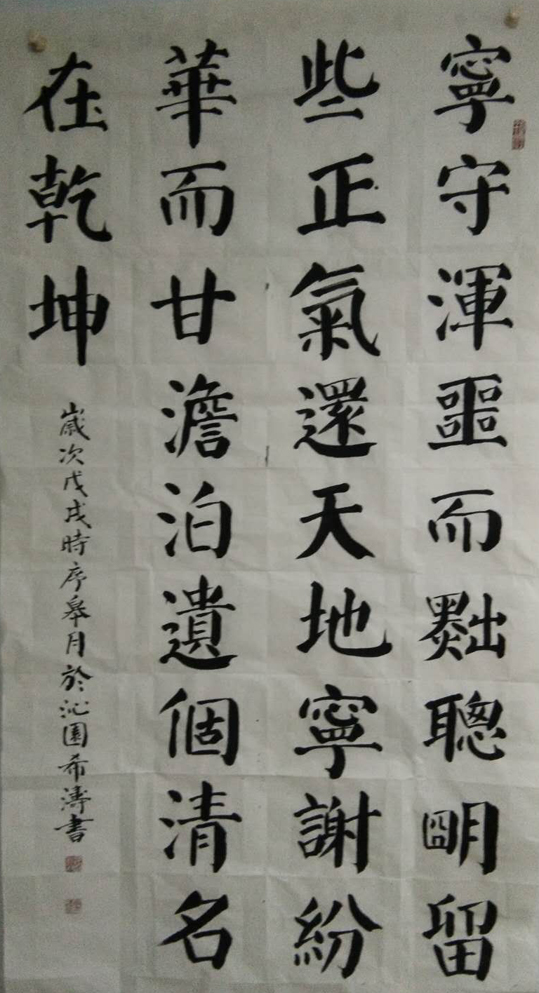 寧守渾噩而黜聰朙留
些正氣還天地寧謝紛
華而甘澹泊遺個清名
在乾坤
歲次戊戌時序皋月於沁園希濤書